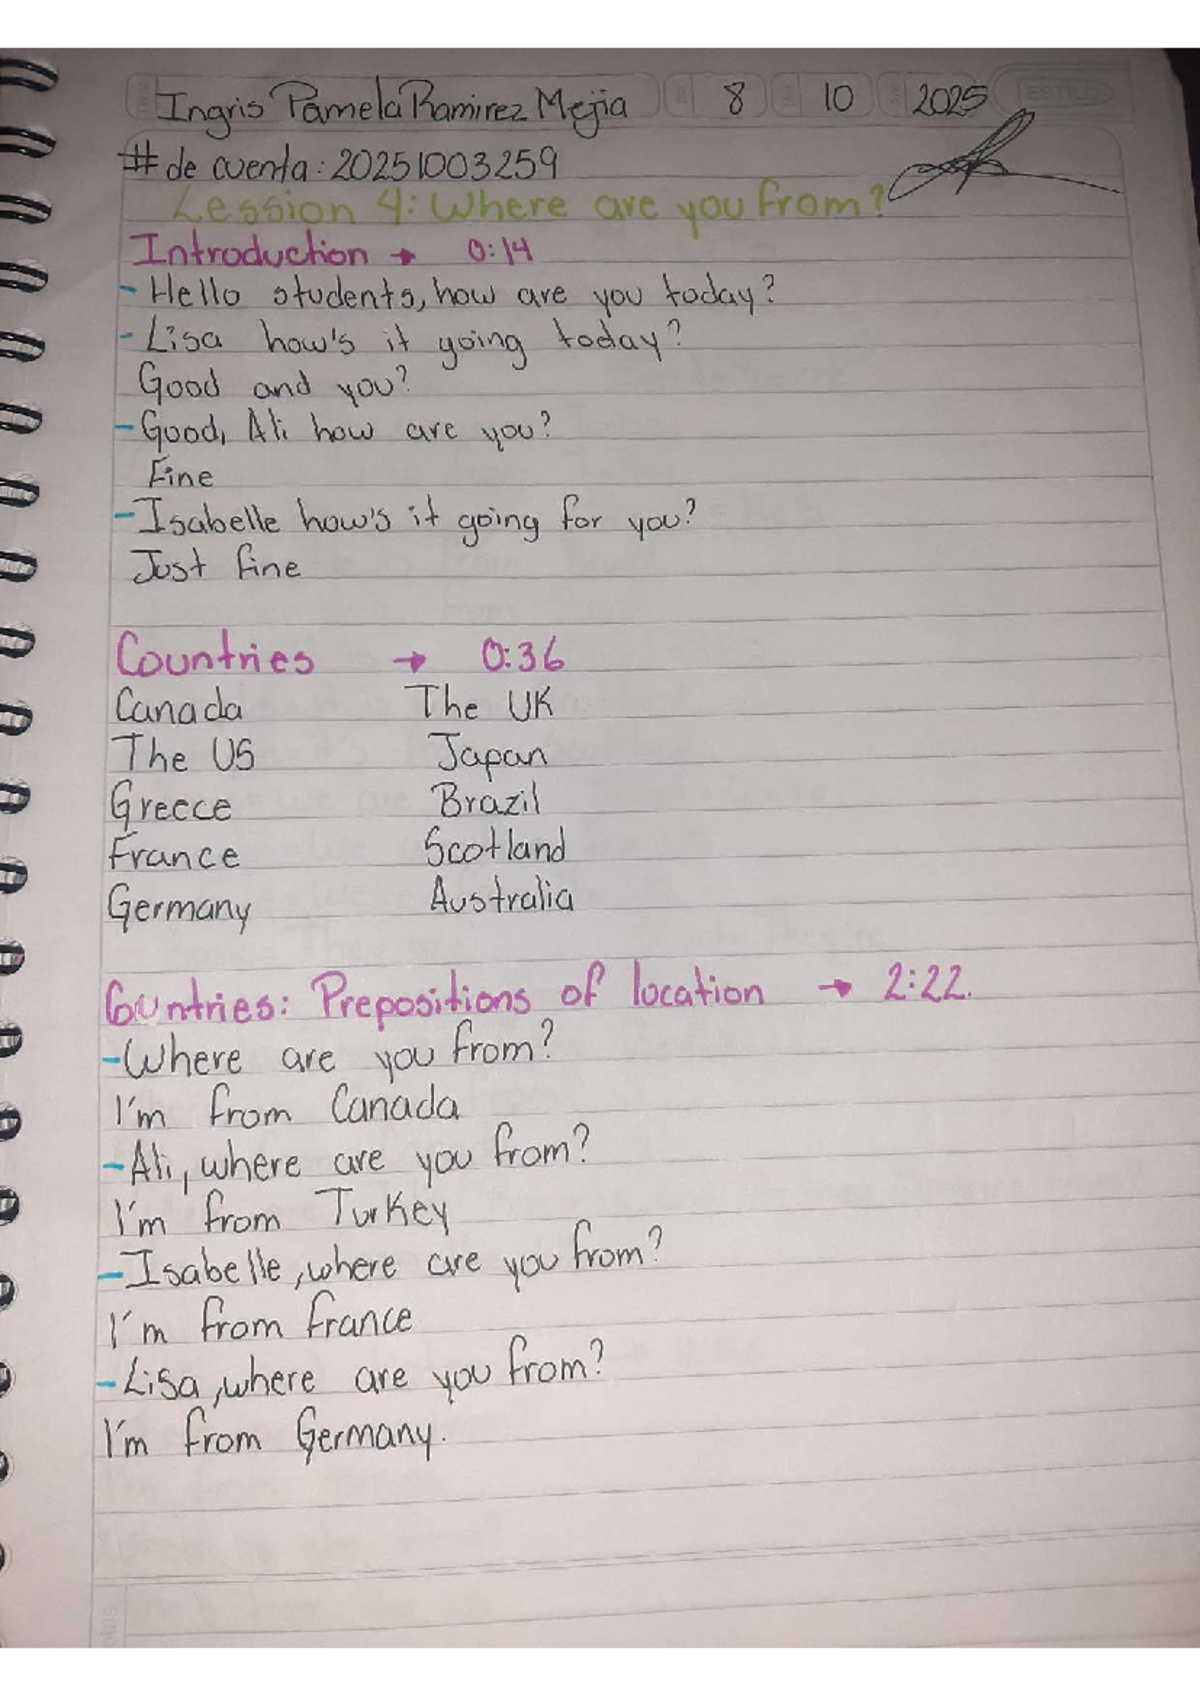 Ingris Pamela Ramirez Mejia 8 10 2025 ESTILO
# de cuenta: 20251003259
Lession 4: Where are you from?
Introduction → 0:14
- Hello students, how are you today?
- Lisa how's it going today?
Good and you?
- Good, Ali how are you?
Fine
- Isabelle how's it going for you?
Just fine
Countries → 0:36
Canada The UK
The US Japan
Greece Brazil
France Scotland
Germany Australia
Countries: Prepositions of location → 2:22.
- Where are you from?
I'm from Canada
- Ali, where are you from?
I'm from Turkey
- Isabelle, where are you from?
I'm from france
- Lisa, where are you from?
I'm from Germany.